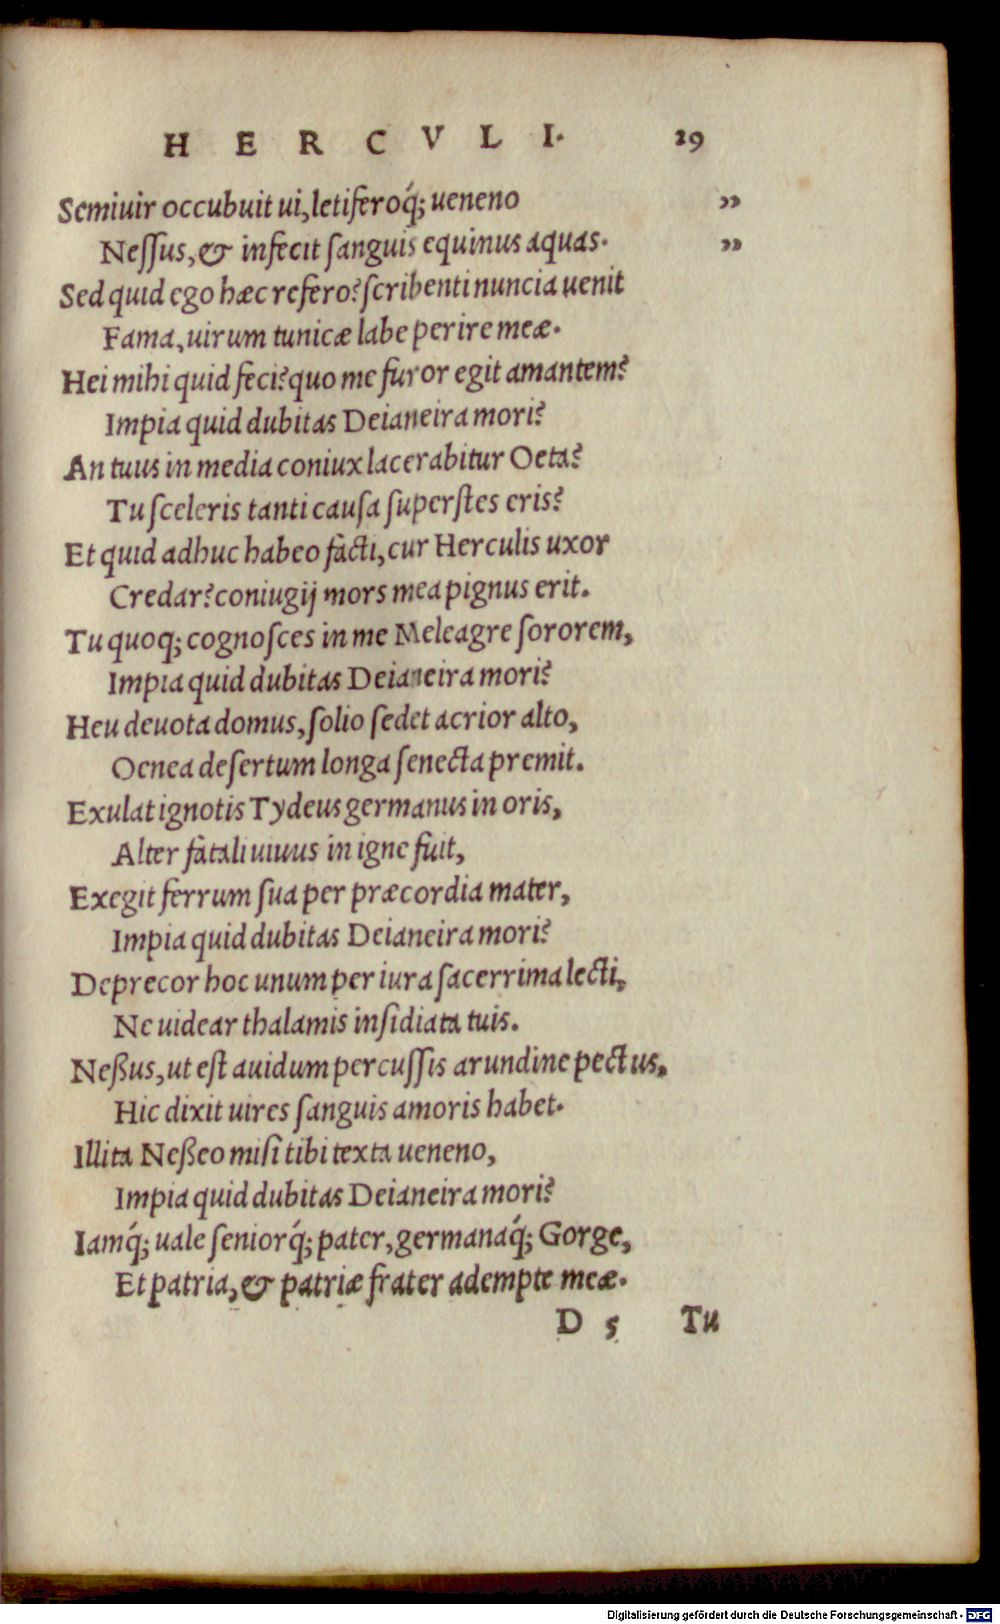 HERCVLI. 29
Semiuir occubuit ui, letiferoq́; ueneno ”
Neſſus, & infecit ſanguis equinus aquas. ”
Sed quid ego hæc refero? ſcribenti nuncia uenit
Fama, uirum tunicæ labe perire meæ.
Hei mihi quid feci? quo me furor egit amantem?
Impia quid dubitas Deianeira mori?
An tuus in media coniux lacerabitur Oeta?
Tu ſceleris tanti cauſa ſuperſtes eris?
Et quid adhuc habeo facti, cur Herculis uxor
Credar? coniugij mors mea pignus erit.
Tu quoq; cognoſces in me Meleagre ſororem,
Impia quid dubitas Deianeira mori?
Heu deuota domus, ſolio ſedet acrior alto,
Oenea deſertum longa ſenecta premit.
Exulat ignotis Tydeus germanus in oris,
Alter fatali uiuus in igne fuit,
Exegit ferrum ſua per præcordia mater,
Impia quid dubitas Deianeira mori?
Deprecor hoc unum per iura ſacerrima lecti,
Ne uidear thalamis inſidiata tuis.
Neßus, ut eſt auidum percuſſis arundine pectus,
Hic dixit uires ſanguis amoris habet.
Illita Neßeo miſi tibi texta ueneno,
Impia quid dubitas Deianeira mori?
Iamq́; uale ſeniorq́; pater, germanaq́; Gorge,
Et patria, & patriæ frater adempte meæ.
D 5 Tu
Digitalisierung gefördert durch die Deutsche Forschungsgemeinschaft - DFG